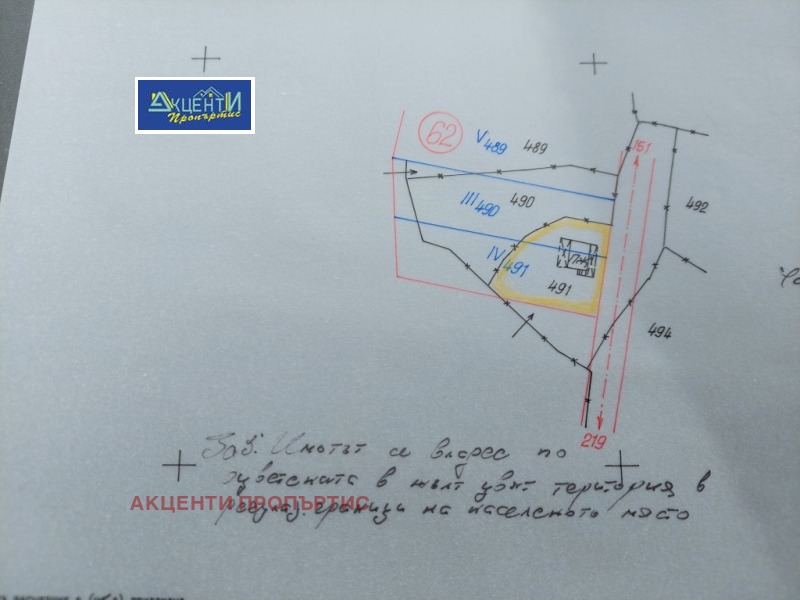 АКЦЕНТИ
Пропъртис
62
V 489
489
151
III 490
490
492
IV 491
491
494
219
Заб: Имотът се владее по
в жълт цвят територия в
граници на населеното място
АКЦЕНТИ ПРОПЪРТИС